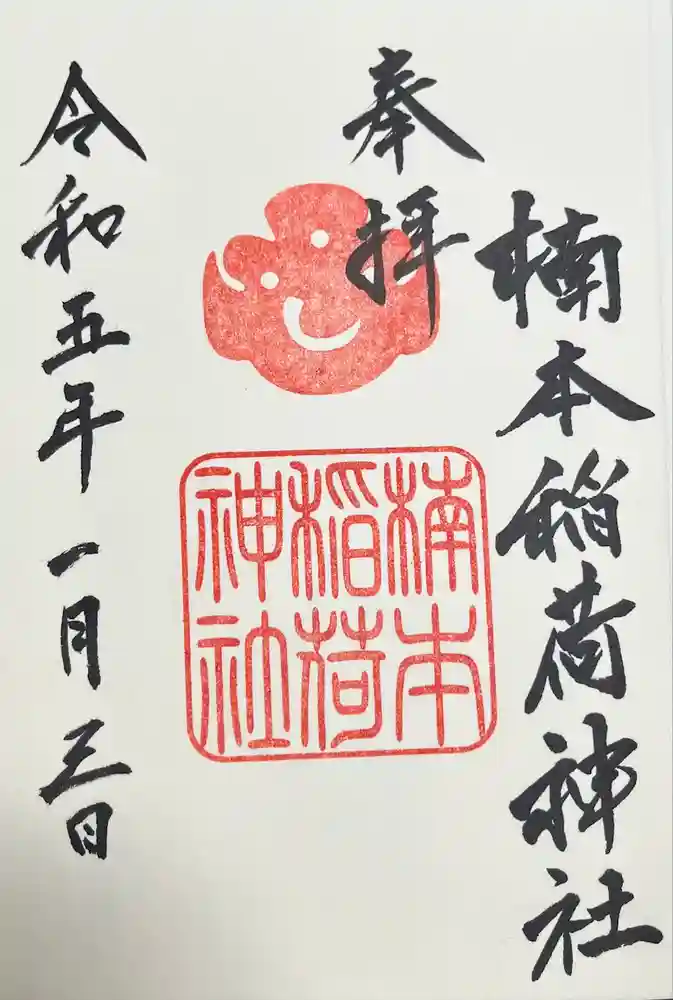 楠本稲荷神社
奉拝
楠本
稲荷
神社
令和五年一月三日